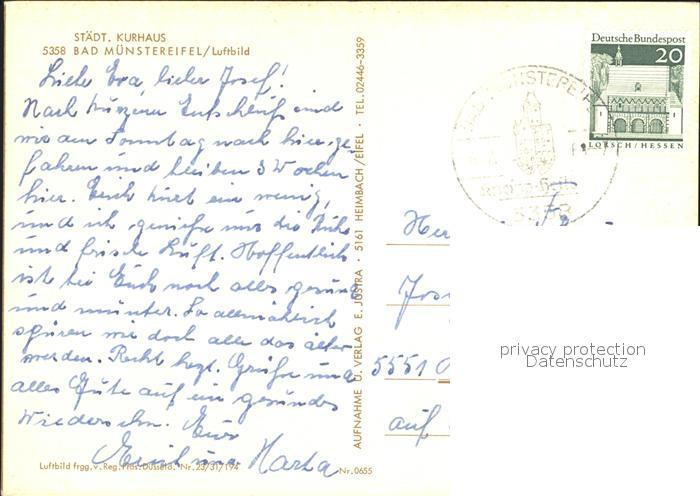 STÄDT. KURHAUS
5358 BAD MÜNSTEREIFEL/Luftbild
Liebe Eva, lieber Josef!
Nach kurzem Entschluß sind
wir am Sonntag nach hier ge
fahren und bleiben 3 Wochen
hier. Erich kurt ein wenig,
und ich genieße nur die Ruhe
und frische Luft. Hoffentlich
ist bei Euch noch alles gesund
und munter. So allmählich
spüren wir doch alle das älter
werden. Recht herzl. Grüße und
alles Gute auf ein gesundes
Wiedersehn. Eure
Erich und Marta
Luftbild frgg.v.Reg.Präs.Düsseld. Nr.23/31/194
Nr.0655
AUFNAHME U. VERLAG E. JUSTRA · 5161 HEIMBACH/EIFEL · TEL.02446-3359
Deutsche Bundespost
20
LORSCH/HESSEN
5358
Her
Jos
5551
auf
privacy protection
Datenschutz